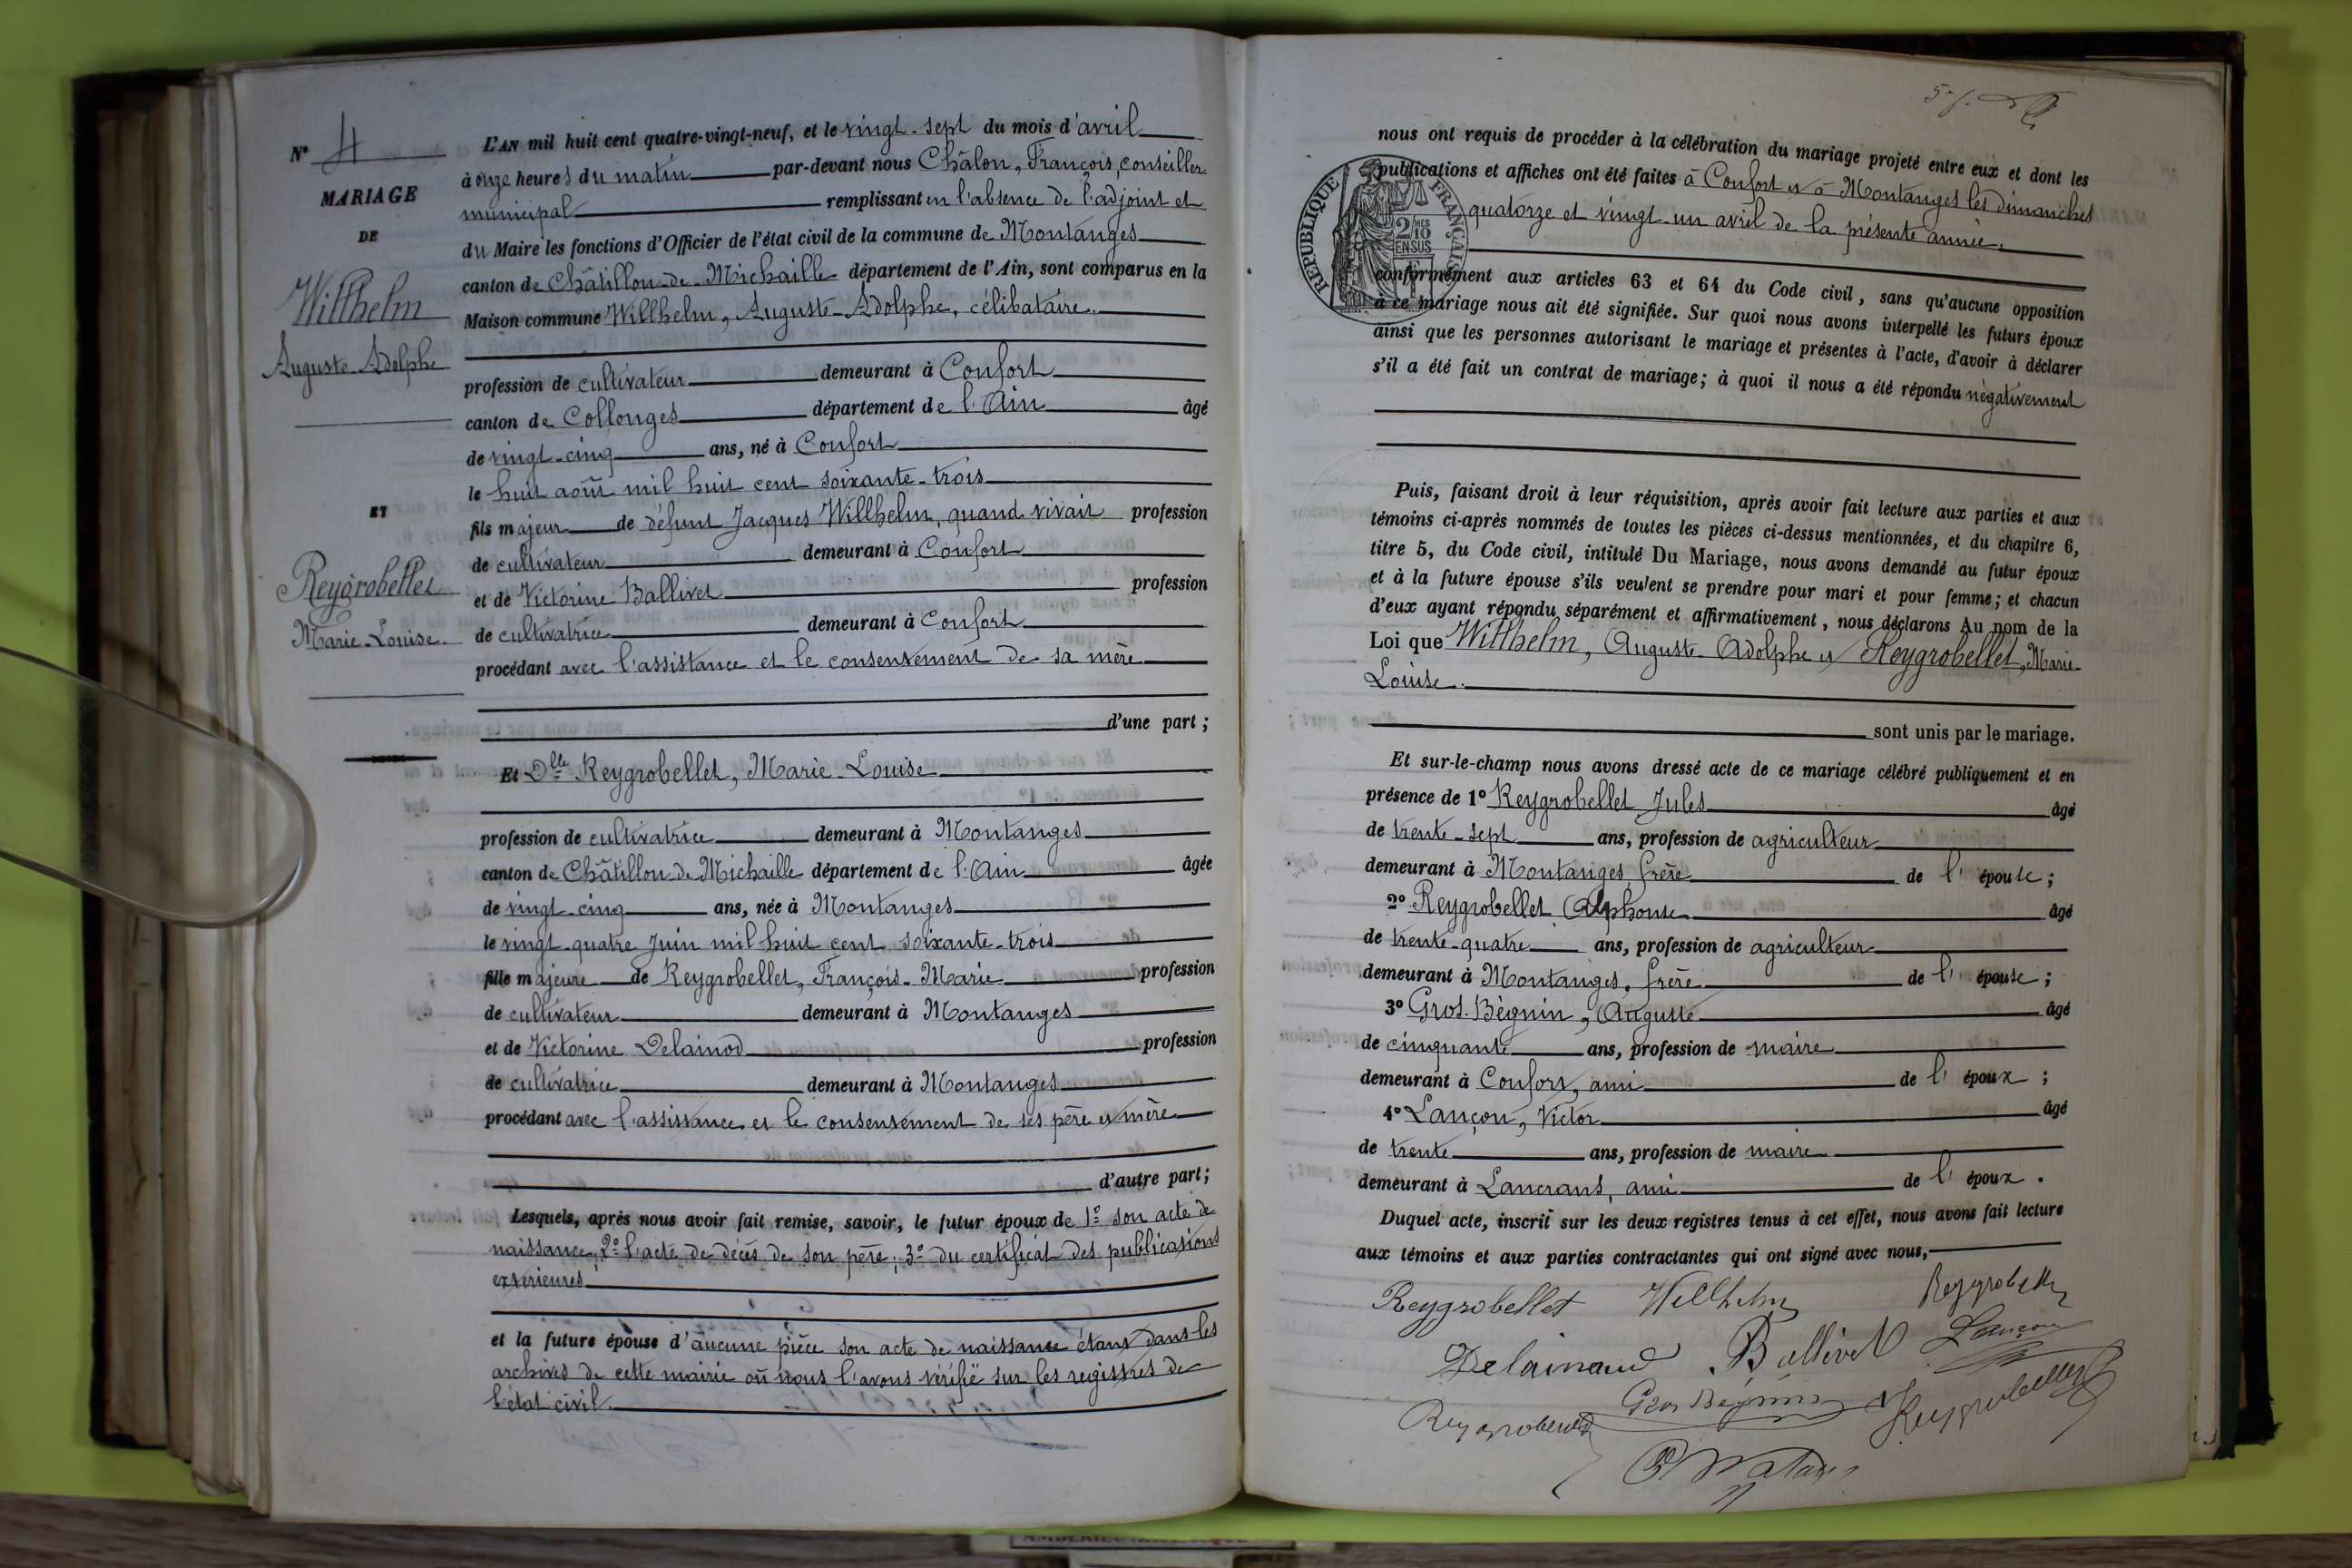 N° 4
MARIAGE
DE
Willhelm
Auguste-Adolphe
ET
Reygrobellet
Marie-Louise.
L'AN mil huit cent quatre-vingt-neuf, et le vingt-sept du mois d'avril
à onze heures du matin par-devant nous Châlon, François, conseiller
municipal remplissant en l'absence de l'adjoint et
du Maire les fonctions d'Officier de l'état civil de la commune de Montanges
canton de Châtillon-de-Michaille département de l'Ain, sont comparus en la
Maison commune Willhelm, Auguste-Adolphe, célibataire.
profession de cultivateur demeurant à Confort
canton de Collonges département de l'Ain âgé
de vingt-cinq ans, né à Confort
le huit août mil huit cent soixante-trois
fils majeur de défunt Jacques Willhelm, quand vivait profession
de cultivateur demeurant à Confort
et de Victorine Ballivet profession
de cultivatrice demeurant à Confort
procédant avec l'assistance et le consentement de sa mère
d'une part ;
Et Dlle Reygrobellet, Marie-Louise
profession de cultivatrice demeurant à Montanges
canton de Châtillon-de-Michaille département de l'Ain âgée
de vingt-cinq ans, née à Montanges
le vingt-quatre Juin mil huit cent soixante-trois
fille majeure de Reygrobellet, François-Marie profession
de cultivateur demeurant à Montanges
et de Victorine Delainod profession
de cultivatrice demeurant à Montanges
procédant avec l'assistance et le consentement de ses père et mère
d'autre part ;
Lesquels, après nous avoir fait remise, savoir, le futur époux de 1° son acte de
naissance; 2° l'acte de décès de son père; 3° du certificat des publications
extérieures
et la future épouse d'aucune pièce son acte de naissance étant dans les
archives de cette mairie où nous l'avons vérifié sur les registres de
l'état civil.
nous ont requis de procéder à la célébration du mariage projeté entre eux et dont les
publications et affiches ont été faites à Confort et à Montanges les dimanches
quatorze et vingt-un avril de la présente année.
REPUBLIQUE FRANÇAISE
2/10
EN SUS
conformément aux articles 63 et 64 du Code civil, sans qu'aucune opposition
à ce mariage nous ait été signifiée. Sur quoi nous avons interpellé les futurs époux
ainsi que les personnes autorisant le mariage et présentes à l'acte, d'avoir à déclarer
s'il a été fait un contrat de mariage; à quoi il nous a été répondu négativement
Puis, faisant droit à leur réquisition, après avoir fait lecture aux parties et aux
témoins ci-après nommés de toutes les pièces ci-dessus mentionnées, et du chapitre 6,
titre 5, du Code civil, intitulé Du Mariage, nous avons demandé au futur époux
et à la future épouse s'ils veulent se prendre pour mari et pour femme; et chacun
d'eux ayant répondu séparément et affirmativement, nous déclarons Au nom de la
Loi que Willhelm, Auguste-Adolphe et Reygrobellet, Marie-
Louise.
sont unis par le mariage.
Et sur-le-champ nous avons dressé acte de ce mariage célébré publiquement et en
présence de 1° Reygrobellet Jules âgé
de trente-sept ans, profession de agriculteur
demeurant à Montanges frère de l'épouse;
2° Reygrobellet Alphonse âgé
de trente-quatre ans, profession de agriculteur
demeurant à Montanges, frère de l'épouse;
3° Gros-Bégnin, Auguste âgé
de cinquante ans, profession de maire
demeurant à Confort, ami de l'époux;
4° Lançon, Victor âgé
de trente ans, profession de maire
demeurant à Lancrans, ami de l'époux.
Duquel acte, inscrit sur les deux registres tenus à cet effet, nous avons fait lecture
aux témoins et aux parties contractantes qui ont signé avec nous,
Reygrobellet Willhelm Reygrobellet
Delainaud Ballivet Lançon
Reygrobellet Gros Bégnin Reygrobellet